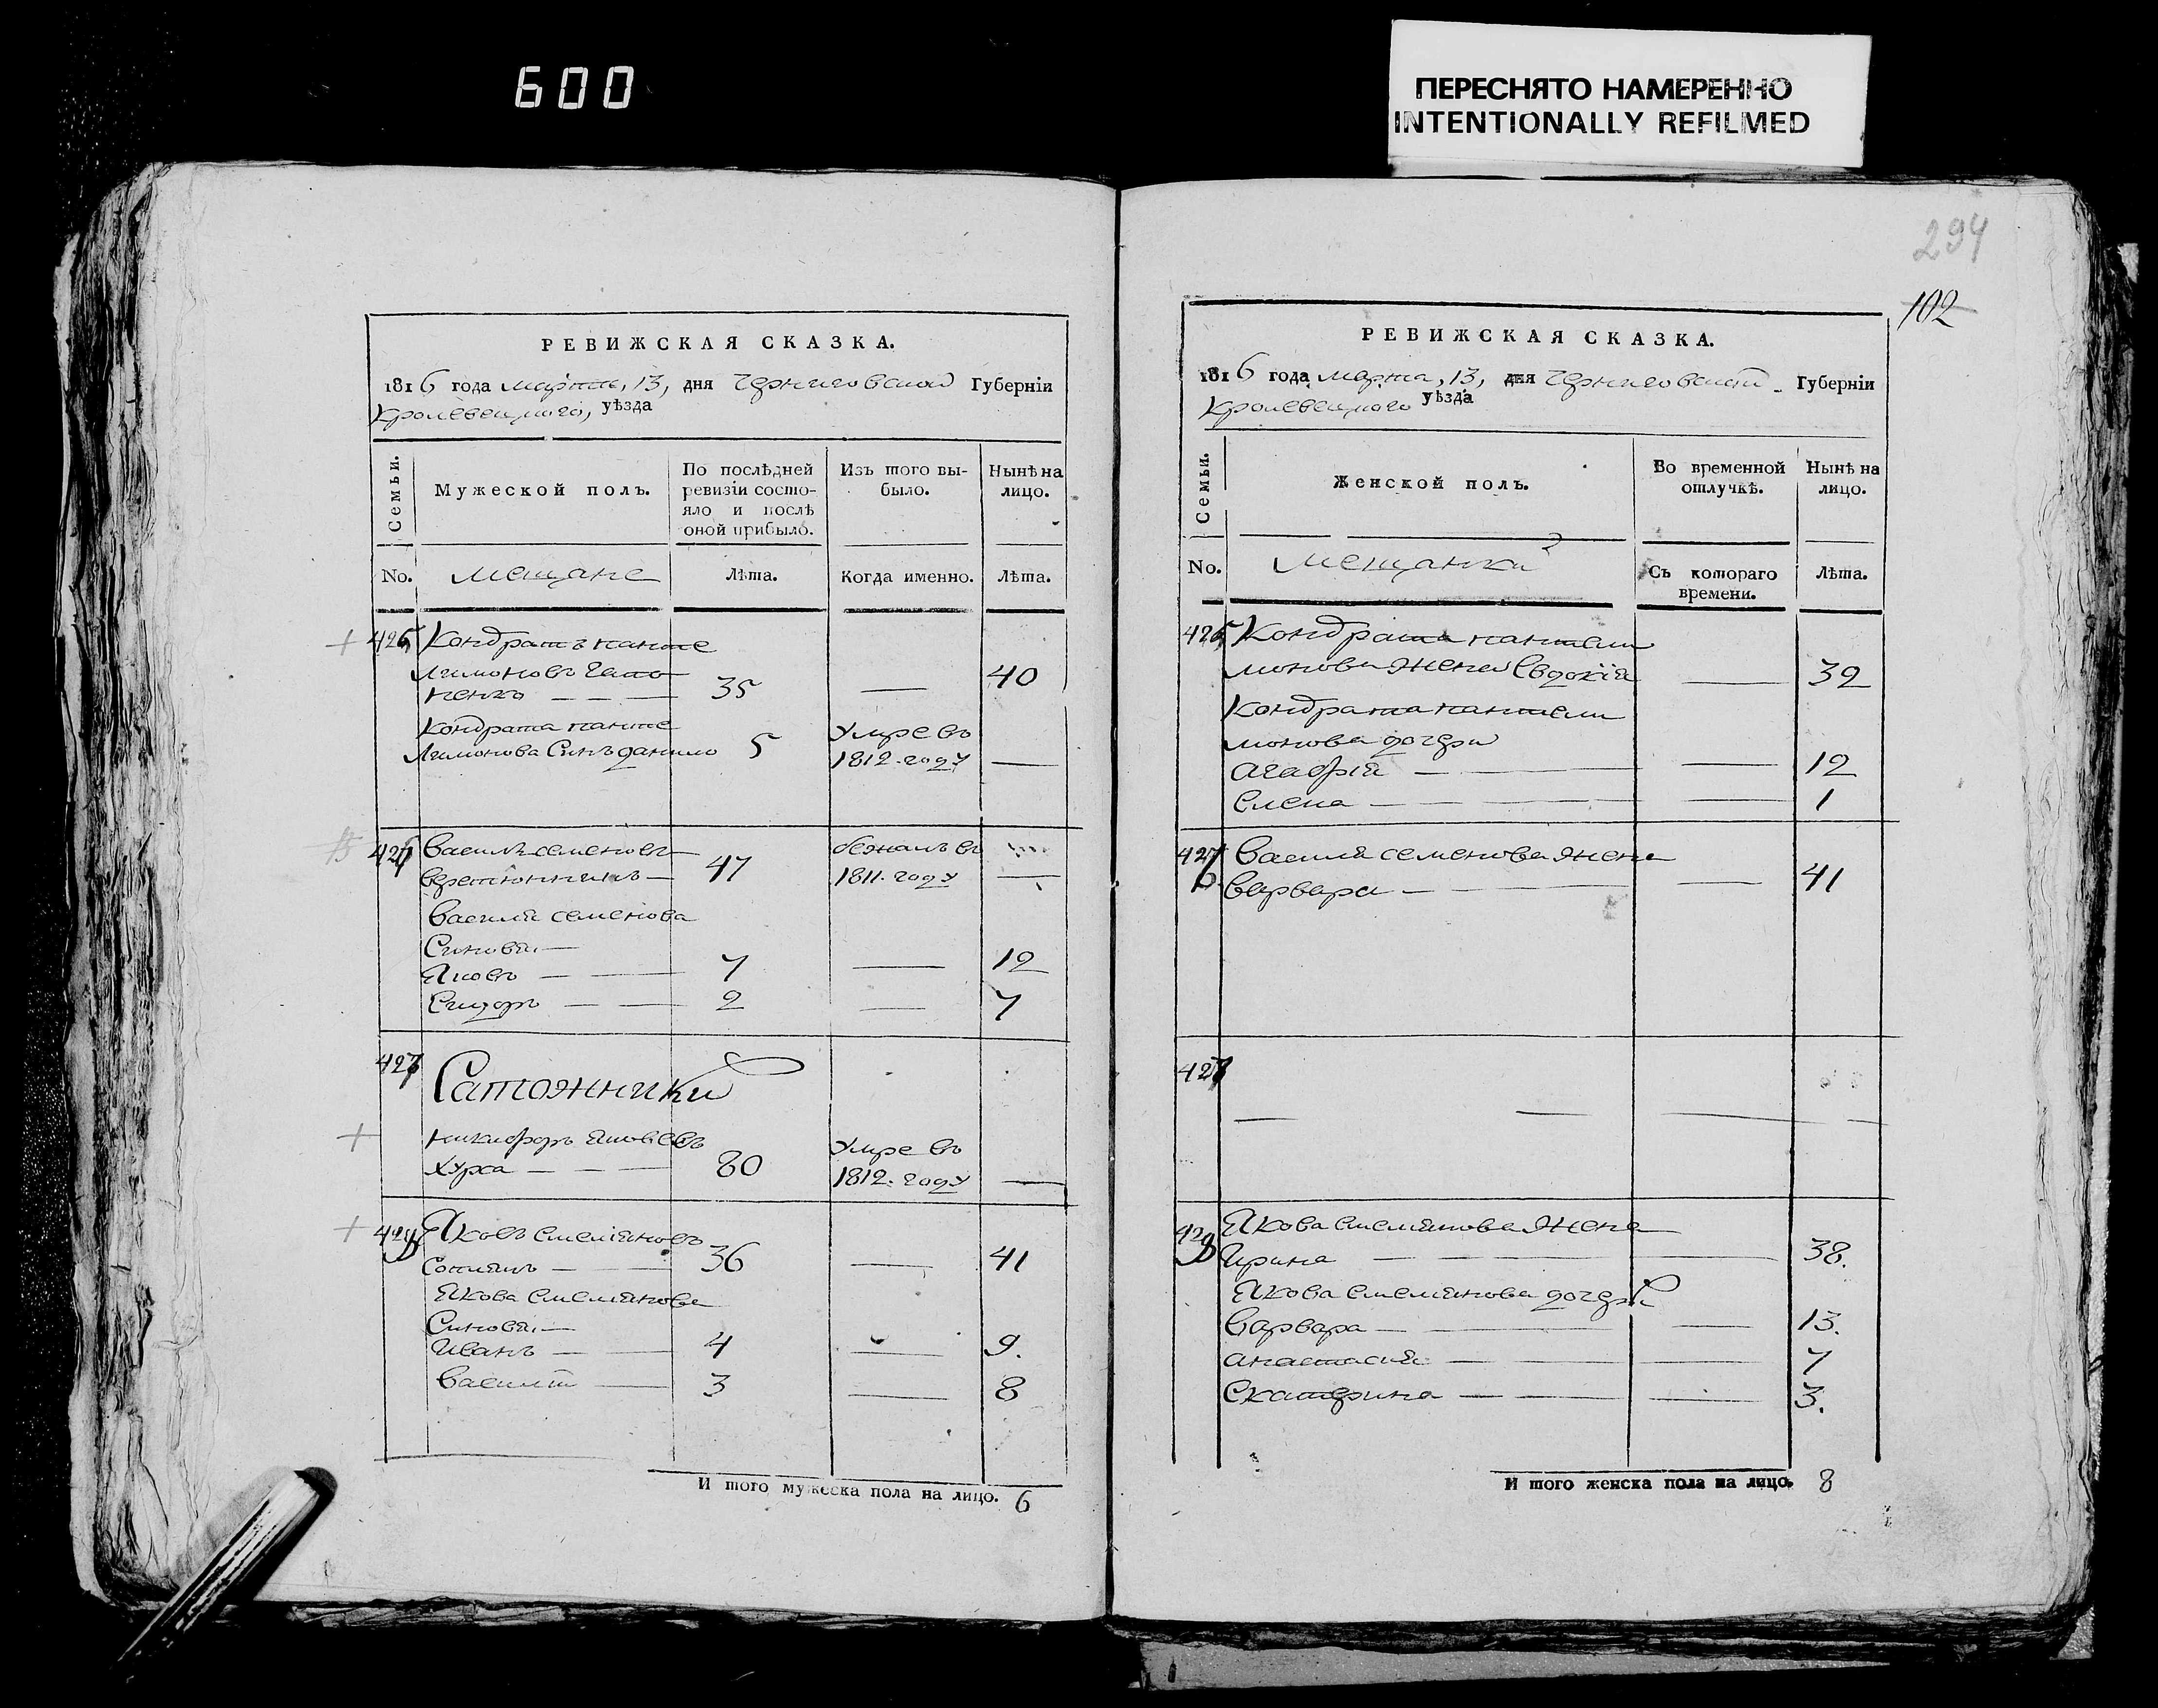 600
ПЕРЕСНЯТО НАМЕРЕННО
INTENTIONALLY REFILMED
294
102
РЕВИЖСКАЯ СКАЗКА.
1816 года марта, 13, дня Черниговской Губерніи
Кролевецкого, уѣзда
Семьи.
Мужеской полъ.
По послѣдней
ревизіи состо-
яло и послѣ
оной прибыло.
Изъ того вы-
было.
Нынѣ на
лицо.
No. мещане Лѣта. Когда именно. Лѣта.
Кондратъ панте
лимоновъ
35 — 40
Кондрата панте Умре въ
лимонова Синъ данило 5 1812. году —
Василь семеновъ бежалъ въ
47 1811. году —
Василя семенова
Синовя —
Яковъ — — 7 — 12
Сидоръ — — 2 — 7
Сапожники
никифоръ Яковлевъ Умре въ
Хурса — — — 80 1812. году —
Яковъ емелияновъ
36 — 41
Якова емелиянова
Синовя —
Иванъ — — 4 — 9.
Василій — 3 — 8
И того мужеска пола на лицо. 6
РЕВИЖСКАЯ СКАЗКА.
1816 года марта, 13, дня Черниговской Губерніи
Кролевецкого уѣзда
Семьи.
Женской полъ.
Во временной
отлучкѣ.
Нынѣ на
лицо.
No. мещанки Съ котораго
времени. Лѣта.
Кондрата пантели
монова жена Евдокія — 32
Кондрата пантели
монова дочери
Агафія — — — 12
Елена — — — 1
Василя семенова жена
Варвара — — — 41
— — — —
Якова емелиянова жена
Ирина — — 38.
Якова емелиянова дочери
Варвара — — — 13.
анастасия — — — 7
Екатерина — — — 3.
И того женска пола на лицо. 8